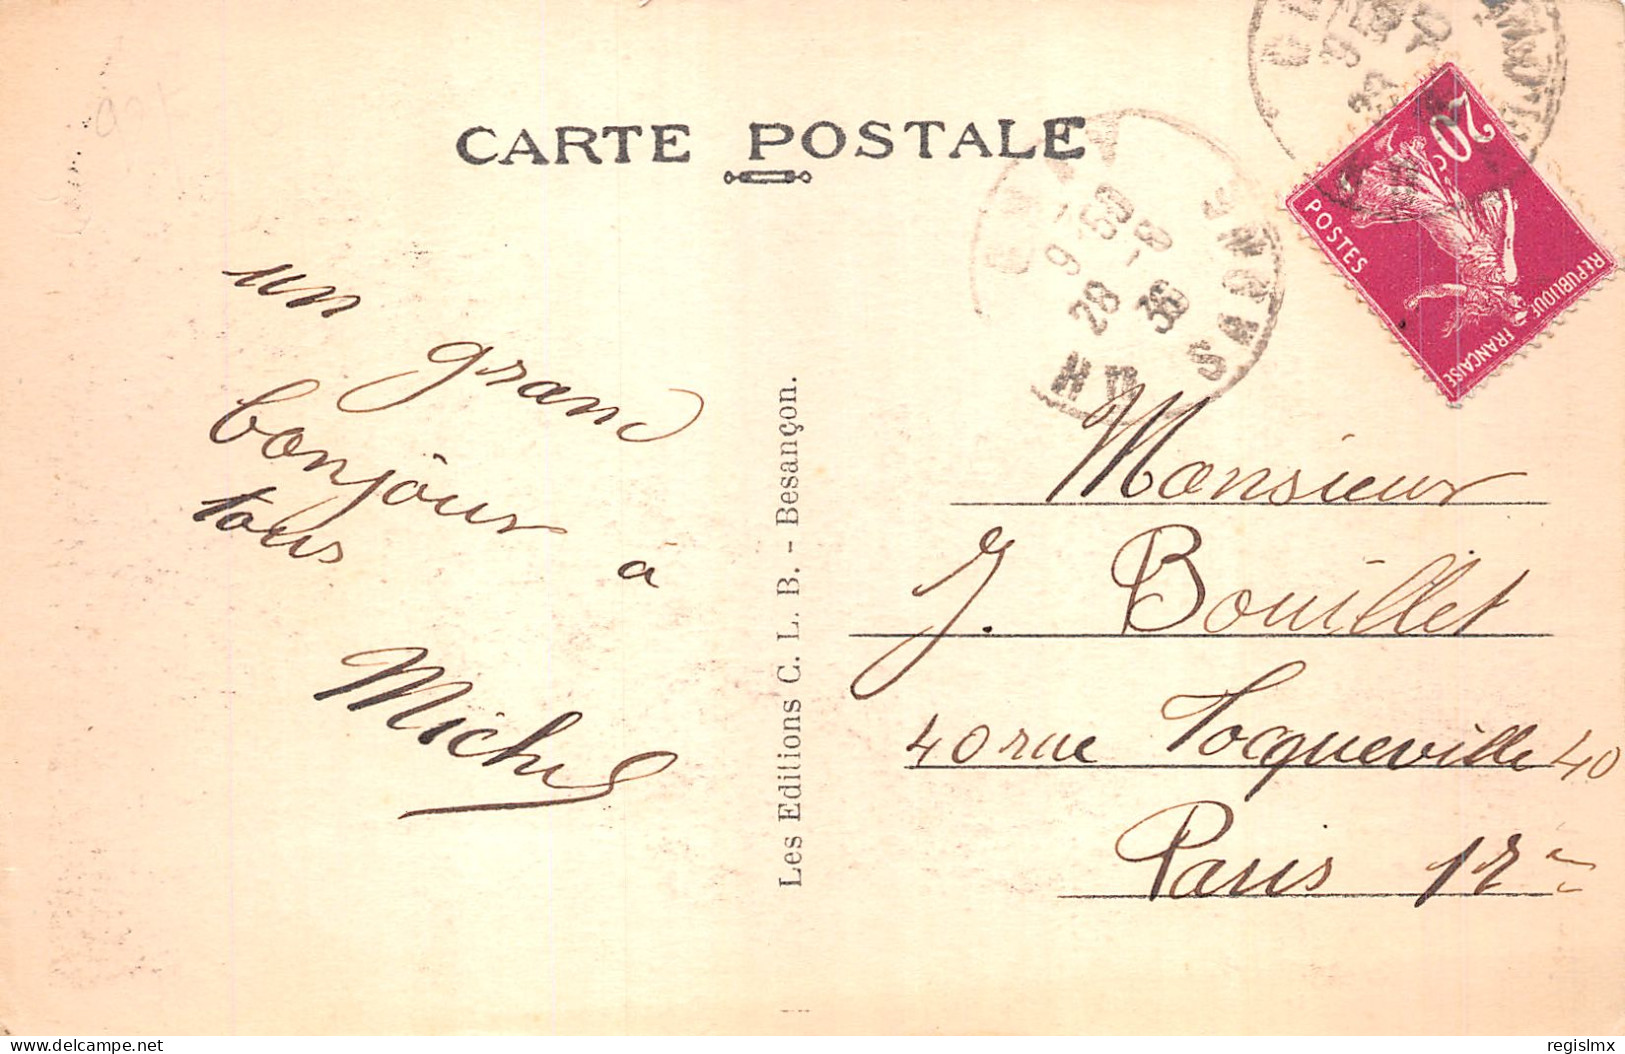 CARTE POSTALE
un
grand
bonjour à
tous
Michel
Les Editions C. L. B. - Besançon.
9-50
28-8
36
SAONE
20c
POSTES
REPUBLIQUE FRANÇAISE
Monsieur
J. Bouillet
40 rue Tocqueville 40
Paris 17e
www.delcampe.net
regislmx